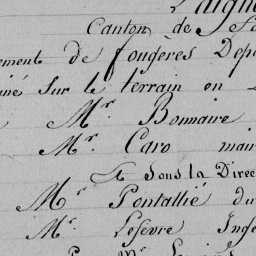 Canton de Fo
ement de fougères Dépa
iné Sur le terrain en
Mr. Bonnaire
Mr. Caro mai
& Sous la Direc
Mr. Pontallié du
Mr. Lefevre Inge
Mr.